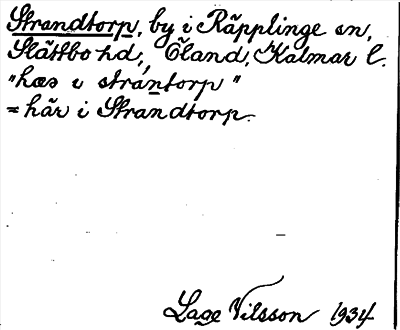 Strandtorp, by i Räpplinge sn,
Slättbo hd., Öland, Kalmar l.
"hæs i strántorp"
= här i Strandtorp.
Lage Nilsson 1934